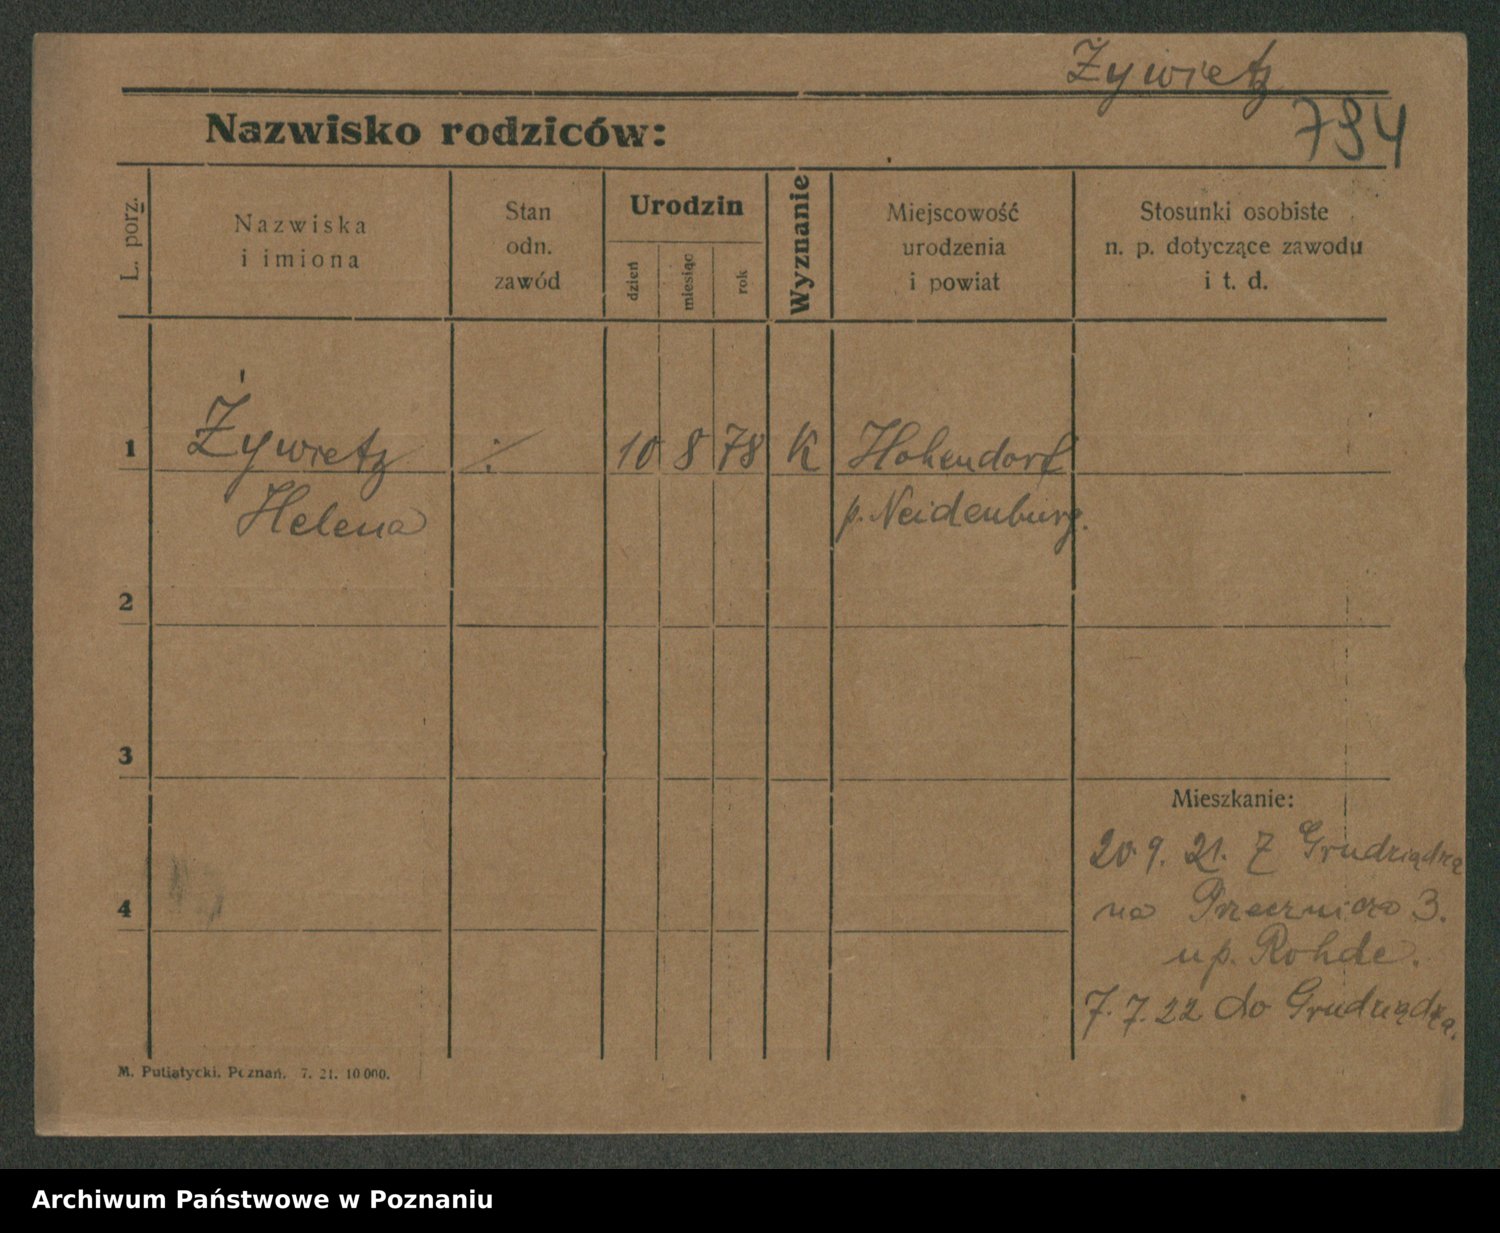 Żywietz
794
Nazwisko rodziców:
L. porz.
Nazwiska
i imiona
Stan
odn.
zawód
Urodzin
dzień
miesiąc
rok
Wyznanie
Miejscowość
urodzenia
i powiat
Stosunki osobiste
n. p. dotyczące zawodu
i t. d.
1 Żywietz ./. 10 8 78 K Hohendorf
Helena p. Neidenburg.
2
3
Mieszkanie:
20 9. 21. Z Grudziądza
4
na Przecznica 3.
up. Rohde.
7. 7. 22 do Grudziądza.
M. Putiatycki. Poznań. 7. 21. 10 000.
Archiwum Państwowe w Poznaniu